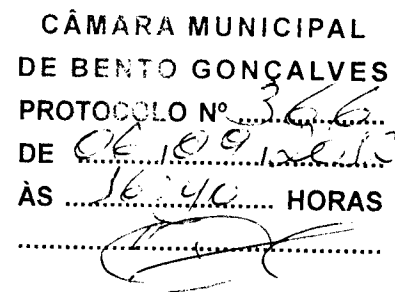 CÂMARA MUNICIPAL
DE BENTO GONÇALVES
PROTOCOLO Nº 366
DE 06, 09,
ÀS 16:40 HORAS